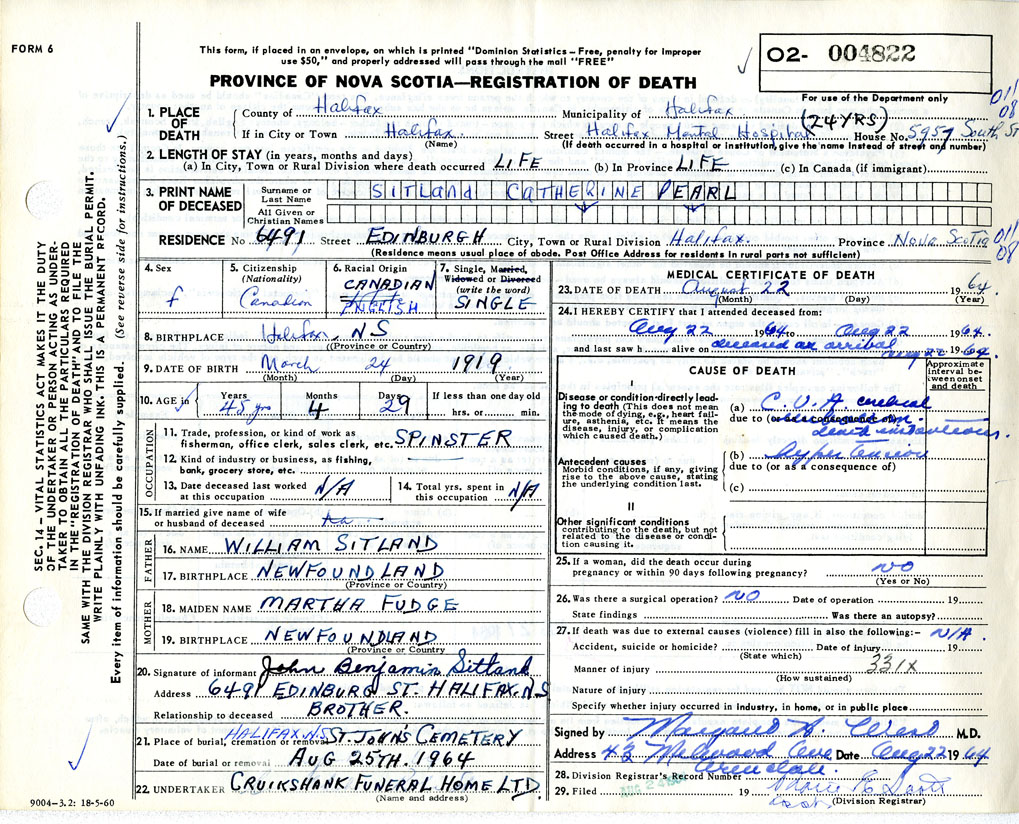 FORM 6
This form, if placed in an envelope, on which is printed "Dominion Statistics – Free, penalty for improper
use $50," and properly addressed will pass through the mail "FREE"
02- 004822
PROVINCE OF NOVA SCOTIA—REGISTRATION OF DEATH
For use of the Department only
011
08
1. PLACE OF DEATH
County of Halifax Municipality of Halifax
(24 YRS)
If in City or Town Halifax Street Halifax Mental Hospital House No. 5957 South St
(Name) (If death occurred in a hospital or institution, give the name instead of street and number)
2. LENGTH OF STAY (in years, months and days)
(a) In City, Town or Rural Division where death occurred LIFE (b) In Province LIFE (c) In Canada (if immigrant)
3. PRINT NAME OF DECEASED
Surname or Last Name SITLAND CATHERINE PEARL
All Given or Christian Names
RESIDENCE No 6491 Street EDINBURGH City, Town or Rural Division Halifax. Province Nova Scotia
011
08
(Residence means usual place of abode. Post Office Address for residents in rural parts not sufficient)
4. Sex
f
5. Citizenship
(Nationality)
Canadian
6. Racial Origin
CANADIAN
ENGLISH
7. Single, Married,
Widowed or Divorced
(write the word)
SINGLE
8. BIRTHPLACE Halifax, NS
(Province or Country)
9. DATE OF BIRTH March 24 1919
(Month) (Day) (Year)
10. AGE in Years Months Days If less than one day old
45 yrs 4 29 hrs. or min.
OCCUPATION
11. Trade, profession, or kind of work as
fisherman, office clerk, sales clerk, etc. SPINSTER
12. Kind of industry or business, as fishing,
bank, grocery store, etc.
13. Date deceased last worked
at this occupation N/A
14. Total yrs. spent in
this occupation N/A
15. If married give name of wife
or husband of deceased
FATHER
16. NAME WILLIAM SITLAND
17. BIRTHPLACE NEWFOUNDLAND
(Province or Country)
MOTHER
18. MAIDEN NAME MARTHA FUDGE
19. BIRTHPLACE NEWFOUNDLAND
(Province or Country
20. Signature of informant John Benjamin Sitland
Address 6491 EDINBURG ST. HALIFAX. NS
Relationship to deceased BROTHER.
21. Place of burial, cremation or removal HALIFAX. NS ST. JOHN'S CEMETERY
Date of burial or removal AUG 25TH. 1964
22. UNDERTAKER CRUIKSHANK FUNERAL HOME LTD.
(Name and address)
9004–3.2: 18-5-60
MEDICAL CERTIFICATE OF DEATH
23. DATE OF DEATH August 22 1964
(Month) (Day) (Year)
24. I HEREBY CERTIFY that I attended deceased from:
Aug 22 1964 to Aug 22 1964.
and last saw h alive on deceased on arrival Aug 22 1964.
CAUSE OF DEATH
Approximate interval between onset and death
I
Disease or condition directly leading to death (This does not mean the mode of dying, e.g., heart failure, asthenia, etc. It means the disease, injury, or complication which caused death.)
(a) C.V.A. cerebral
due to (or as a consequence of)
death instantaneous.
Antecedent causes
Morbid conditions, if any, giving rise to the above cause, stating the underlying condition last.
(b) Hypertension
due to (or as a consequence of)
(c)
II
Other significant conditions
contributing to the death, but not related to the disease or condition causing it.
25. If a woman, did the death occur during
pregnancy or within 90 days following pregnancy? NO
(Yes or No)
26. Was there a surgical operation? NO Date of operation 19
State findings Was there an autopsy?
27. If death was due to external causes (violence) fill in also the following:– N/A.
Accident, suicide or homicide? Date of injury 19
(State which)
Manner of injury 331X
(How sustained)
Nature of injury
Specify whether injury occurred in industry, in home, or in public place
Signed by Margaret A. M.D.
Address 43 Melwood Ave Date Aug 22 1964
Armdale.
28. Division Registrar's Record Number
29. Filed AUG 24 1964 19 Scott
(Division Registrar)
asst
SEC. 14 – VITAL STATISTICS ACT MAKES IT THE DUTY
OF THE UNDERTAKER OR PERSON ACTING AS UNDER-
TAKER TO OBTAIN ALL THE PARTICULARS REQUIRED
IN THE "REGISTRATION OF DEATH" AND TO FILE THE
SAME WITH THE DIVISION REGISTRAR WHO SHALL ISSUE THE BURIAL PERMIT.
WRITE PLAINLY WITH UNFADING INK. THIS IS A PERMANENT RECORD.
Every item of information should be carefully supplied. (See reverse side for instructions.)